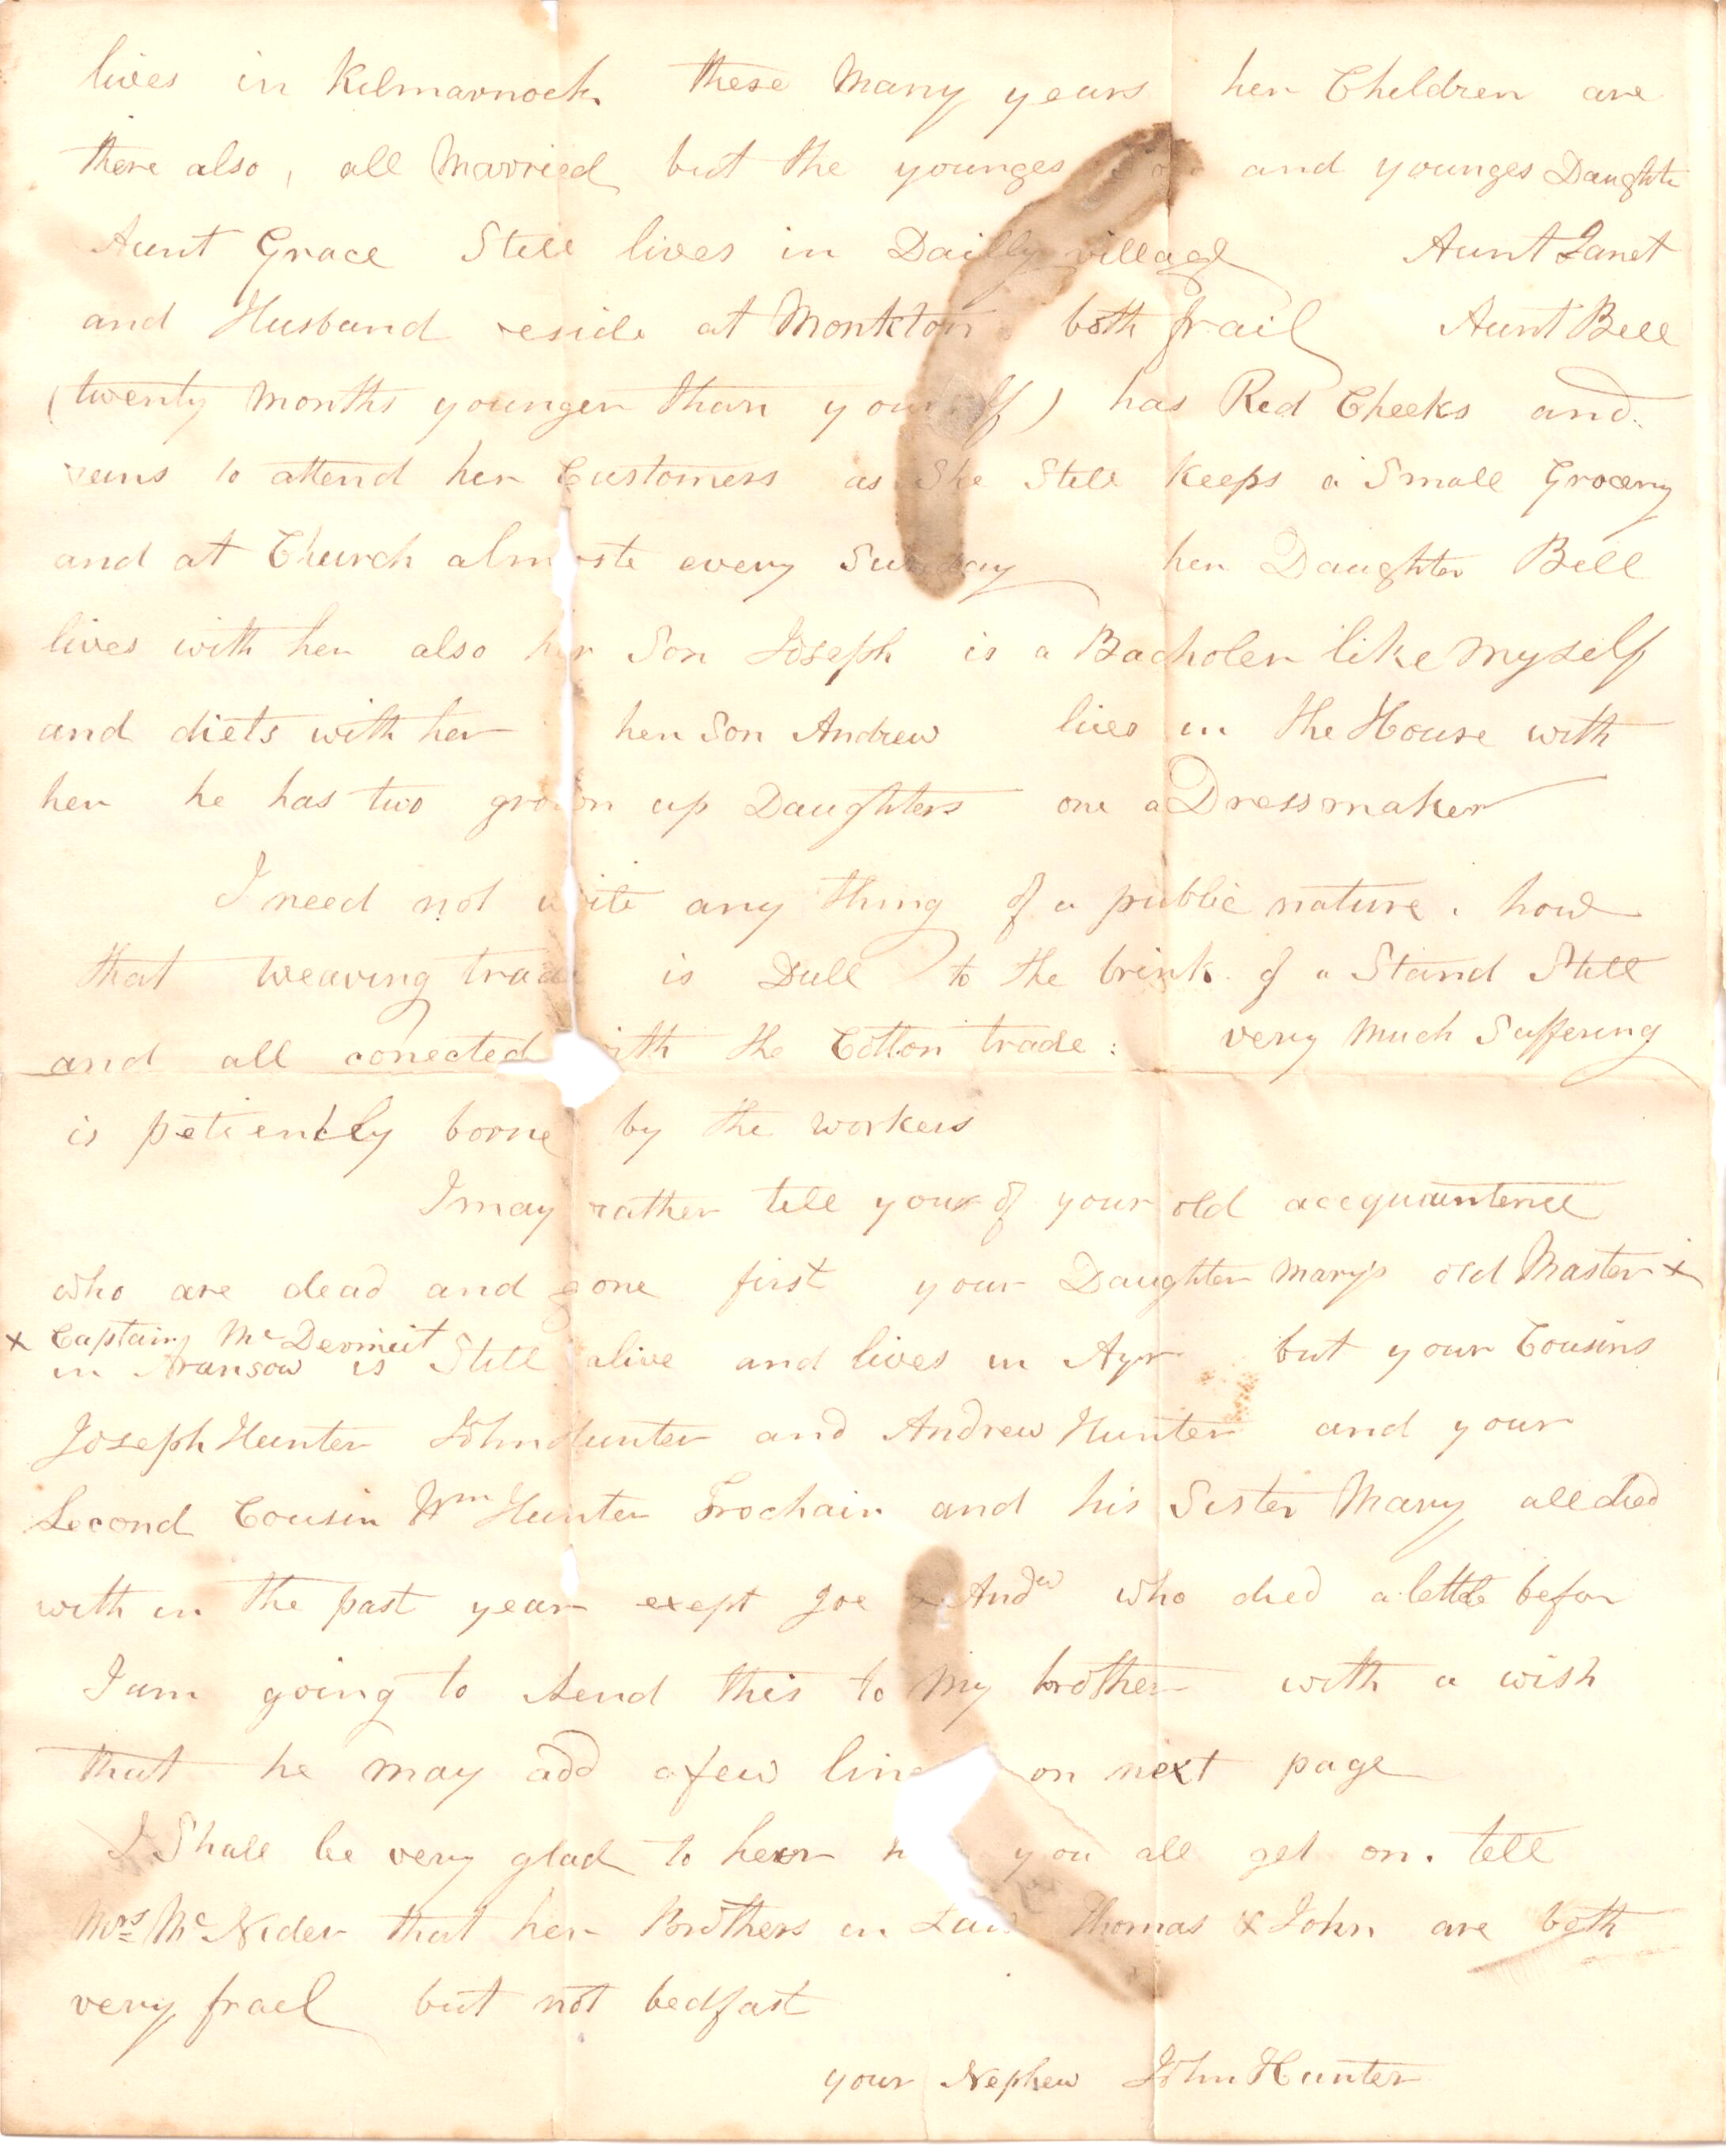 lives in Kilmarnock these Many years her Children are
there also, all Married but the younges and younges Daughte
Aunt Grace Still lives in Dailly village Aunt Janet
and Husband reside at Monkton both frail Aunt Bell
(twenty Months younger than yourself) has Red Cheeks and
runs to attend her Customers as She Still Keeps a Small Grocery
and at Church almoste every Sunday her Daughter Bell
lives with her also her Son Joseph is a Bacholer like Myself
and diets with her her Son Andrew lives in the House with
her he has two grown up Daughters one a Dressmaker
I need not write any thing of a public nature. how
that weaving trade is Dull to the brink of a Stand Still
and all conected with the Cotton trade: very Much Suffering
is petiently borne by the workers
I may rather tell your of your old accquaintence
who are dead and gone first your Daughter Mary's old Master x
x Captain McDermeit
in is Still alive and lives in Ayr but your Cousins
Joseph Hunter John Hunter and Andrew Hunter and your
Second Cousin Wm Hunter Trochain and his Sister Mary all died
with in the past year exept Joe & Andw who died a little befor
I am going to Send this to My brother with a wish
that he may add a few line on next page
I Shall be very glad to hear h you all get on. tell
Mrs McNider that her Brothers in Law Thomas & John are both
very frael but not bedfast
your Nephew John Hunter